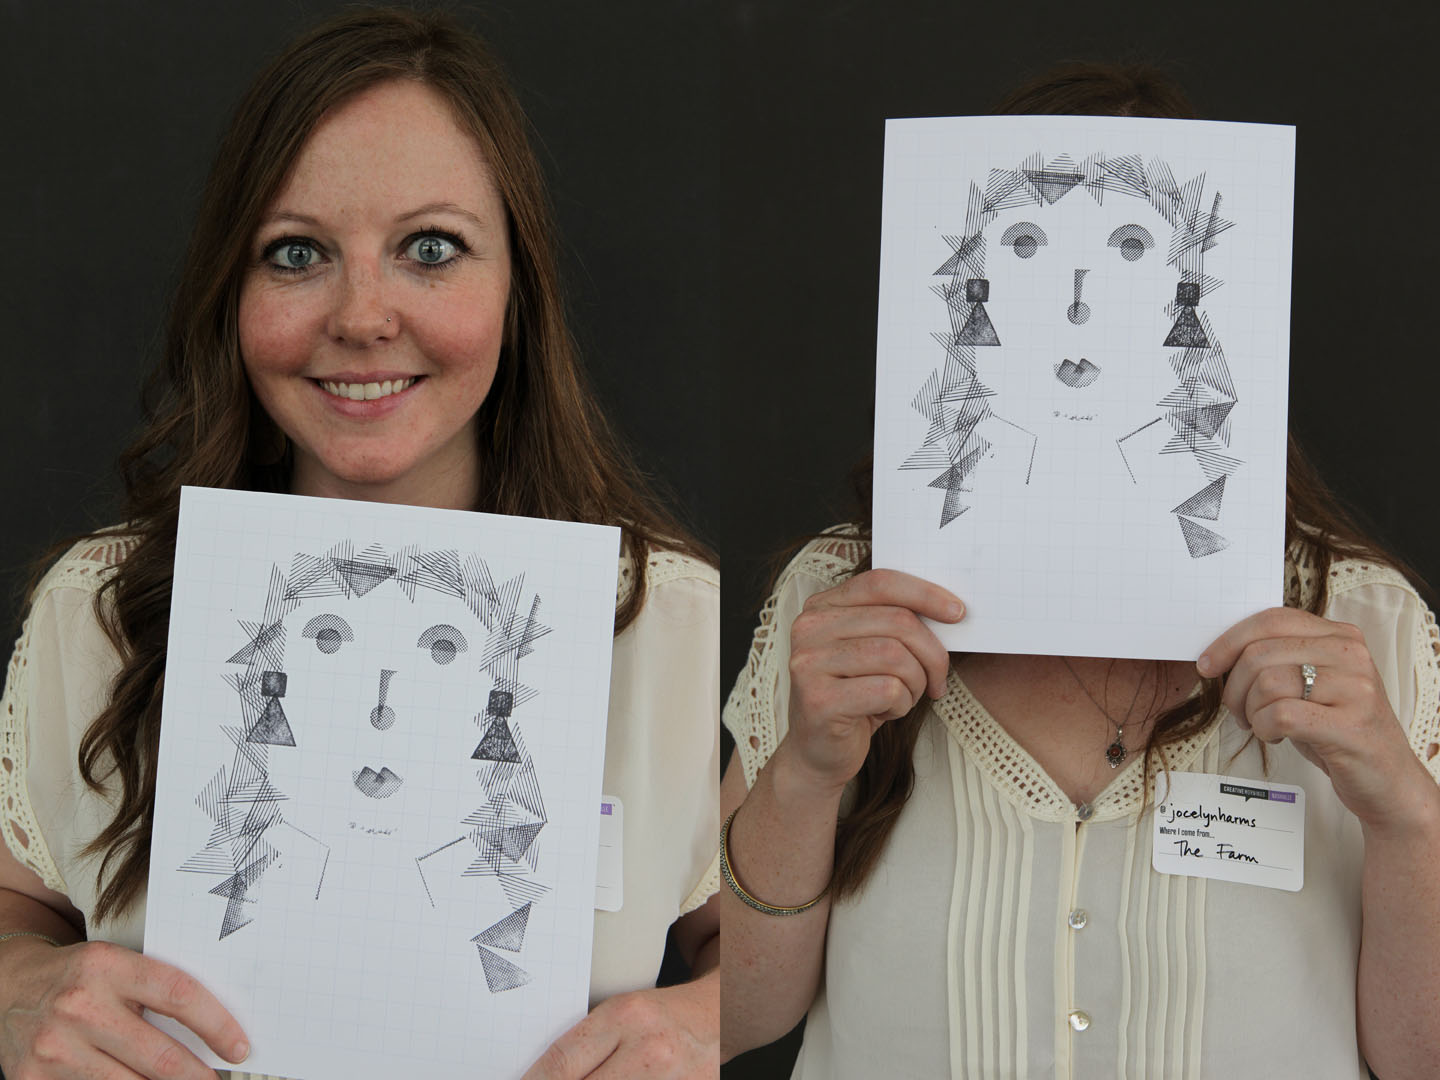 CREATIVEMORNINGS NASHVILLE
@jocelynharms
Where I come from...
The Farm